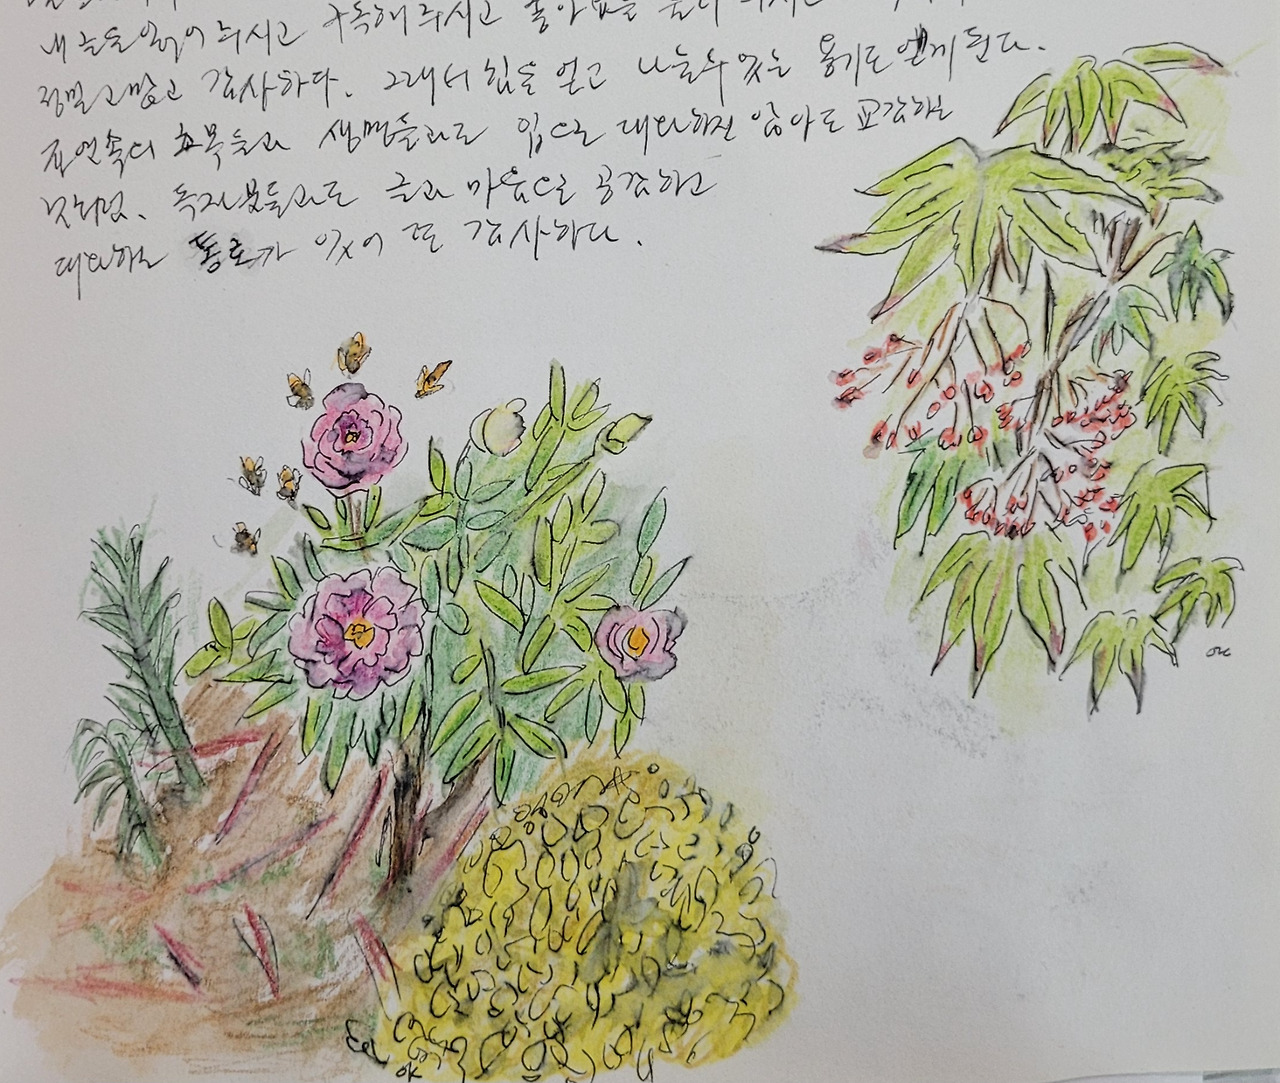 내 글을 읽어 주시고 구독해 주시고 좋아요를 눌러 주시고
정말 고맙고 감사하다. 그래서 힘을 얻고 나눌수 있는 용기도 얻게 된다.
자연속의 초목들과 생명들과도 입으로 대화하진 않아도 교감하는
것처럼. 독자분들과도 글과 마음으로 공감하고
대화하는 통로가 있어 또 감사하다.